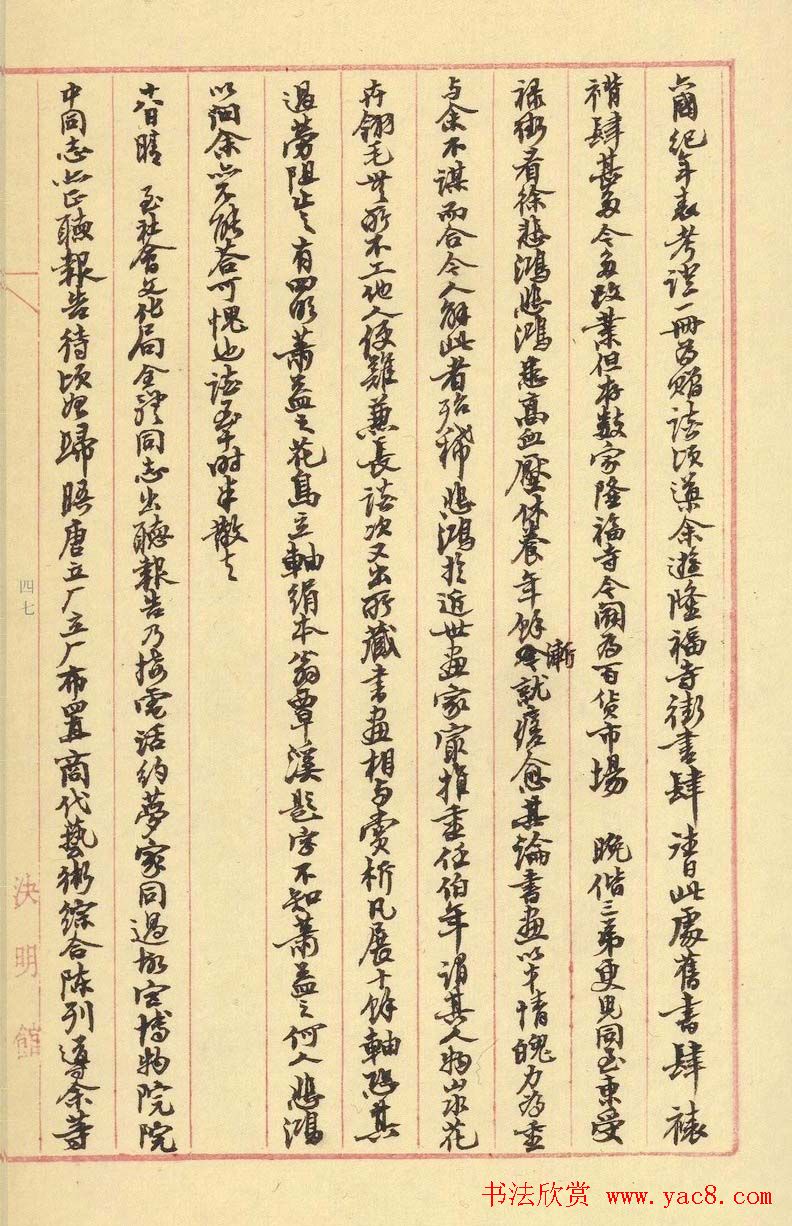 六国纪年表考證一冊为贈談頃導余遊隆福寺街書肆 昔此處舊書肆裱
褙肆甚多今多改業但存数家隆福寺今闢为百貨市場 晚偕三弟更見同至東受
禄街看徐悲鴻悲鴻患高血壓休養年餘漸就痊愈其論書畫以才情魄力为重
与余不謀而合今人解此者殆稀悲鴻於近世画家家推重任伯年謂其人物山水花
卉翎毛無所不工他人便難兼長談次又出所藏書画相与賞析凡展十餘軸恐其
過勞阻止之有四明蕭益之花鳥立軸絹本翁覃溪題字不知蕭益之何人悲鴻
以詢余亦不能答可愧也談至十时半散去
十八日晴 至社會文化局全體同志出聽報告乃接電话約夢家同過故宫博物院院
中同志亦正聽報告待頃始歸晤唐立厂立厂布置商代藝術綜合陈列導余等
四七
決明館
书法欣赏 www.yac8.com